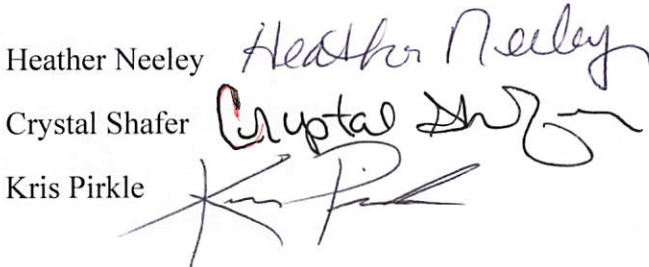 Heather Neeley Heather Neeley
Crystal Shafer Crystal Shafer
Kris Pirkle Kris Pirkle